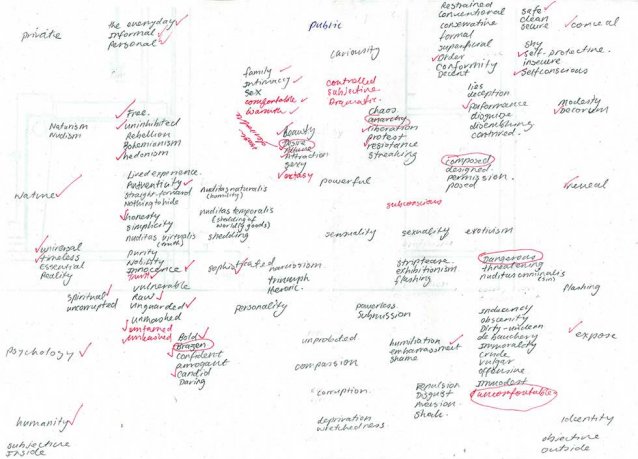 private
the everyday
informal
personal
Public
Cariousity
Restrained
Conventional
conservative
formal
superficial
Order
conformity
Decent
safe
clean
secure
conceal
Shy
Self-protective.
insecure
Selfconscious
family
intimacy
sex
comfortable
warmth
controlled
subjective
lies
deception
performance
disguise
dissembling
contrived.
Modesty
Decorum
Naturism
nudism
Free.
uninhibited
Rebellion
Bohemianism
hedonism
beauty
Desire
Allure
Attraction
sexy
ecstasy
chaos
anarchy
liberation
protest
resistance
streaking
composed
designed
permission.
posed
Nature
Lived experience.
Authenticity
Straight-forward
Nothing to hide
honesty
simplicity
nuditas virtualis
(truth)
purity
Nobility
Innocence
nuditas naturalis
(humility)
nuditas temporalis
(shedding of
worldly goods)
shedding
powerful
subconscious
reveal
universal
timeless
Essential
Reality
sensuality
sexuality
erotisism
sophisticated
narcissism
triumph
Heroic.
striptease
exhibitionism
flashing
Dangerous
threatening
nuditus criminalis
(sin)
Spiritual
uncorrupted
vulnerable
Raw
Unguarded
unmasked
untamed
Unleashed
personality
powerless
submission
flashing
Indecency
obscenity
Dirty-unclean
debauchery
Immorality
crude
vulgar
offensive
Immodest
uncomfortable
expose
Psychology
Bold
Brazen
Confident
arrogant
candid
Daring
unprobited
compassion
humiliation
embarrassment
shame
corruption.
Repulsion
Disgust
Aversion
Shock.
humanity
deprivation
wretchedness.
identity
subjective
inside
objective
outside